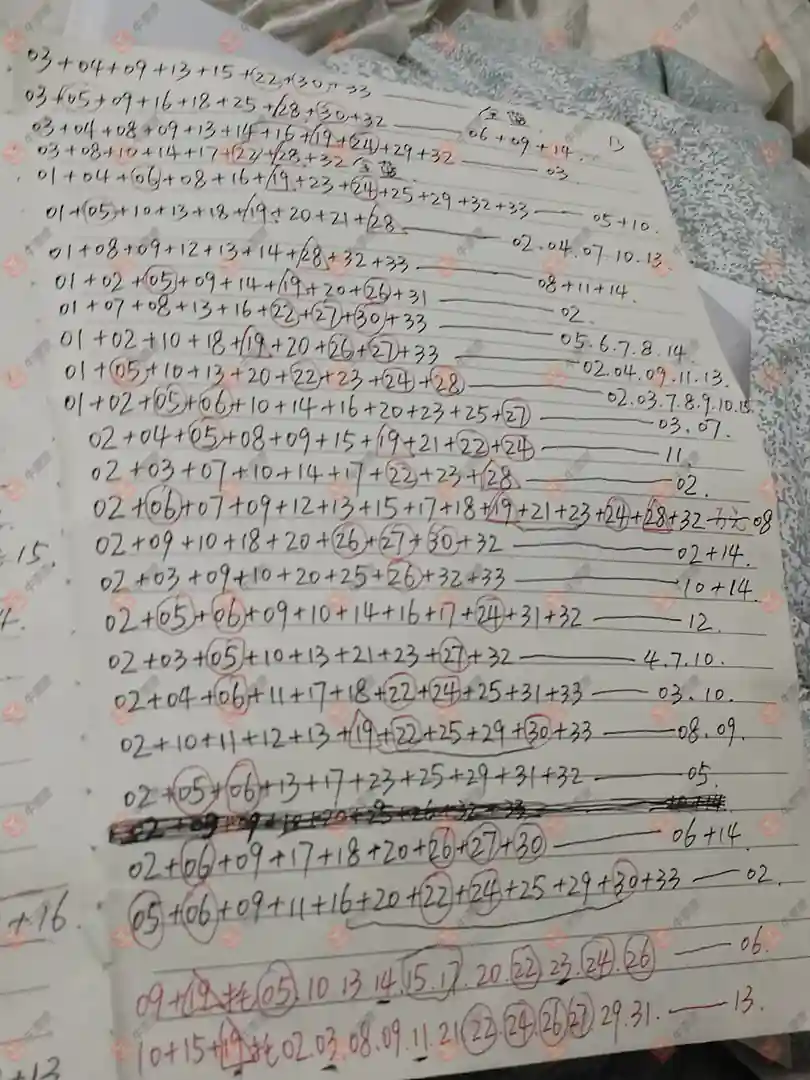 03+04+09+13+15+22+30+33
03+05+09+16+18+25+28+30+32 06+09+14.
03+04+08+09+13+14+16+19+24+29+32 03
03+08+10+14+17+22+28+32
01+04+06+08+16+19+23+24+25+29+32+33 05+10.
01+05+10+13+18+19+20+21+28 02.04.07.10.13.
01+08+09+12+13+14+28+32+33 08+11+14.
01+02+05+09+14+19+20+26+31 02.
01+07+08+13+16+22+27+30+33 05.6.7.8.14.
01+02+10+18+19+20+26+27+33 02.04.09.11.13.
01+05+10+13+20+22+23+24+28 02.03.7.8.9.10.15.
01+02+05+06+10+14+16+20+23+25+27 03.07.
02+04+05+08+09+15+19+21+22+24 11.
02+03+07+10+14+17+22+23+28 02.
02+06+07+09+12+13+15+17+18+19+21+23+24+28+32 08
02+09+10+18+20+26+27+30+32 02+14.
02+03+09+10+20+25+26+32+33 10+14.
02+05+06+09+10+14+16+17+24+31+32 12.
02+03+05+10+13+21+23+27+32 4.7.10.
02+04+06+11+17+18+22+24+25+31+33 03.10.
02+10+11+12+13+19+22+25+29+30+33 08.09.
02+05+06+13+17+23+25+29+31+32 05.
02+06+09+17+18+20+26+27+30 06+14.
05+06+09+11+16+20+22+24+25+29+30+33 02.
09+19 拖 05.10 13 14.15.17.20.22 23.24.26 06.
10+15+19 拖 02.03.08.09.11.21 22.24.26 27 29.31. 13.
15.
+16.
+13